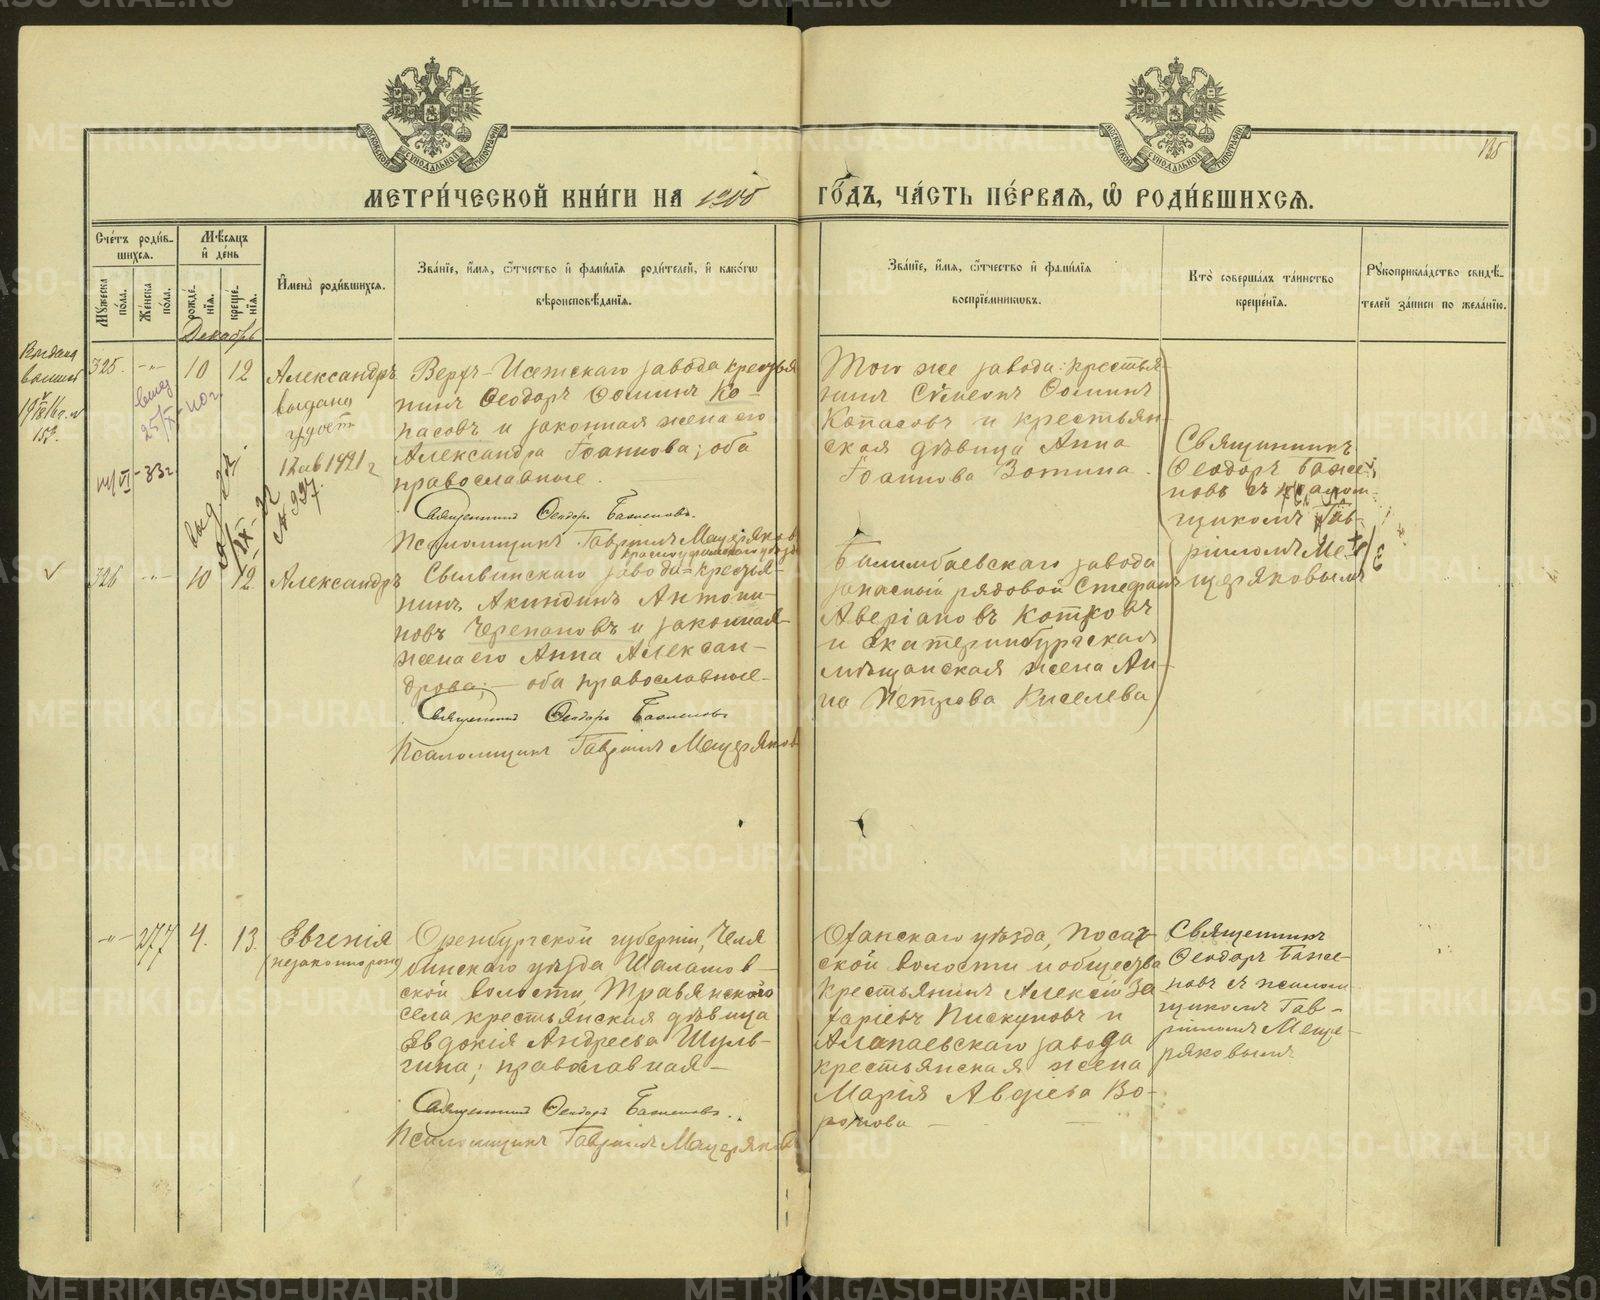 135
МОСКОВСКОЙ СѴНОДАЛЬНОЙ ТИПОГРАФІИ
МОСКОВСКОЙ СѴНОДАЛЬНОЙ ТИПОГРАФІИ
МЕТРИ́ЧЕСКОЙ КНИ́ГИ НА 1905 ГО́ДЪ, ЧА́СТЬ ПЕ́РВАЯ, Ѡ РОДИ́ВШИХСЯ.
Сче́тъ роди́в-
шихся.
Мꙋжеска по́ла.
Же́нска по́ла.
Мѣ́сяцъ
и де́нь
рожде́нїя.
креще́нїя.
Имена̀ роди́вшихся.
Зва́нїе, и́мя, ѻ́тчество и фами́лїя роди́телей, и како́гѡ
вѣроисповѣ́данїя.
Зва́нїе, и́мя, ѻ́тчество и фами́лїя
воспрїе́мниковъ.
Кто̀ соверша́лъ та́инство
креще́нїя.
Рꙋкоприкла́дство свидѣ́-
телей за́писи по жела́нїю.
Декабрь
325. -"- 10 12
Александръ
выдано
удост
12 ав 1921 г
№ 937.
Верх-Исетскаго завода крестья
нинъ Ѳеодоръ Ѳоминъ Ко-
пасовъ и законная жена его
Александра Іоаннова; оба
православные.
Священникъ Ѳеодоръ Баженовъ.
Псаломщикъ Гавріилъ Мещеряковъ
Того же завода: крестья-
нинъ Сѵмеонъ Ѳоминъ
Копасовъ и крестьян-
ская дѣвица Анна
Іоаннова Зотина.
Священникъ
Ѳеодоръ Баже-
новъ съ псалом-
щикомъ Гав-
ріиломъ Ме-
щеряковымъ
326 -"- 10 12.
Александръ
Красноуфимскаго уѣзда
Сылвинскаго завода крестья-
нинъ Акиндинъ Антони-
новъ Черепановъ и законная
жена его Анна Алексан-
дрова; — оба православные-
Священникъ Ѳеодоръ Баженовъ
Псаломщикъ Гавріилъ Мещеряковъ
Билимбаевскаго завода
запасный рядовой Стефанъ
Аверіановъ Котковъ
и Екатеринбургская
мѣщанская жена Ан-
на Петрова Киселева
-"- 277 4. 13.
Евгенія
(незаконнорож)
Оренбургской губерніи, Челя
бинскаго уѣзда
ской волости, Травянскаго
села крестьянская дѣвица
Евдокія Андреева Шуль-
гина; православная —
Священникъ Ѳеодоръ Баженовъ.
Псаломщикъ Гавріилъ Мещеряковъ
Оханскаго уѣзда, Посад-
ской волости и общества
крестьянинъ Алексій За
харіевъ Пискуновъ и
Алапаевскаго завода
крестьянская жена
Марія Авдіева Во-
ронова —
Священникъ
Ѳеодоръ Баже-
новъ съ псалом
щикомъ Гав-
ріиломъ Меще-
ряковымъ
METRIKI.GASO-URAL.RU